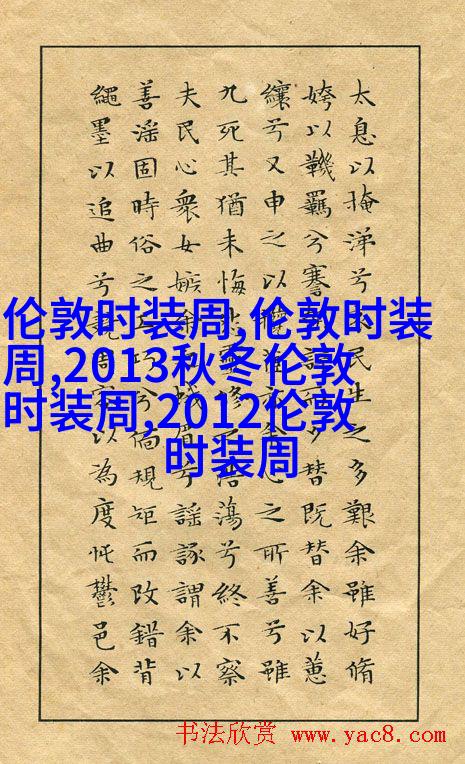 太息以掩涕兮民生之多艱余雖好脩
姱以鞿羈兮謇誶而夕替既替余以蕙
纕兮又申之以攬余心之所善兮雖
九死其猶未悔怨靈脩浩蕩兮終不察
夫民心衆女嫉余眉兮謠諑謂余以
善淫固時俗之工巧兮偭規矩而改錯背
繩墨以追曲兮競周容以為度忳鬱邑余
伦敦时装周,伦敦时装
周,2013秋冬伦敦
时装周,2012伦敦
时装周
书法欣赏 www.yac8.com